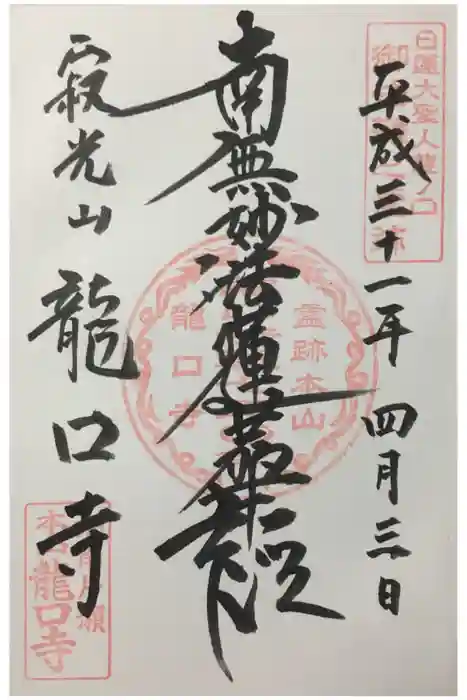 日蓮大聖人龍ノ口
平成三十一年四月三日
南無妙法蓮華経
霊跡本山
龍口寺
寂光山 龍口寺
本山龍口寺